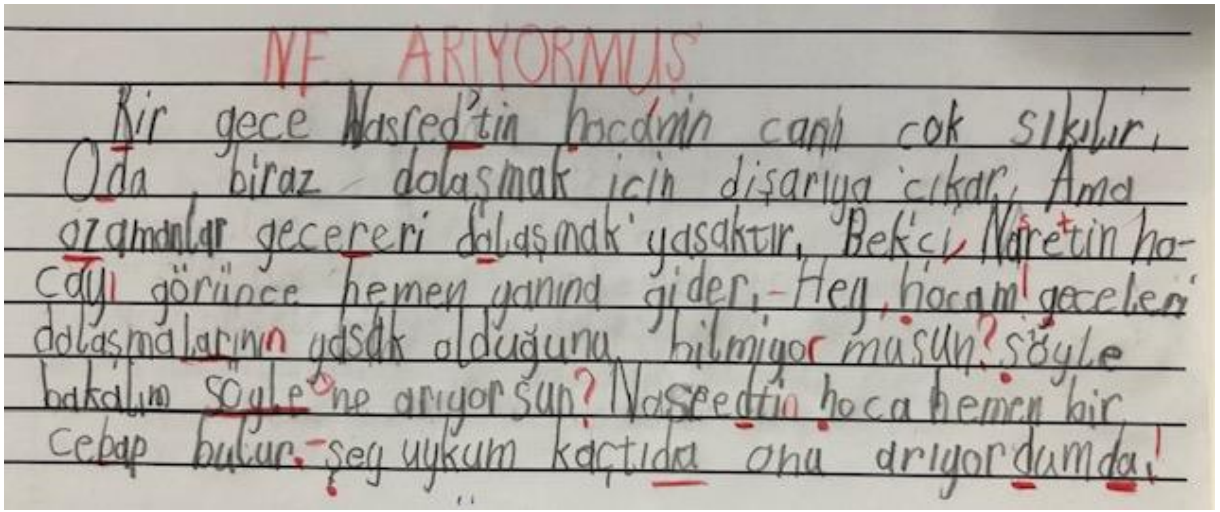 NE ARIYORMUŞ
Bir gece Nasred'tin hocanin canı cok sıkılır.
Oda biraz dolaşmak icin dişarıya cıkar. Ama
ozamanlar gecereri dolaşmak yasaktır. Bekci, Nasrettin ho-
cayı görünce hemen yanına gider. - Hey, hocam! geceleri
dolaşmalarının yasak olduğunu bilmiyor musun? söyle
bakalım söyle ne arıyorsun? Nasreedtin hoca hemen bir
cebap bulur. - şey uykum kaçtıda onu arıyordumda!